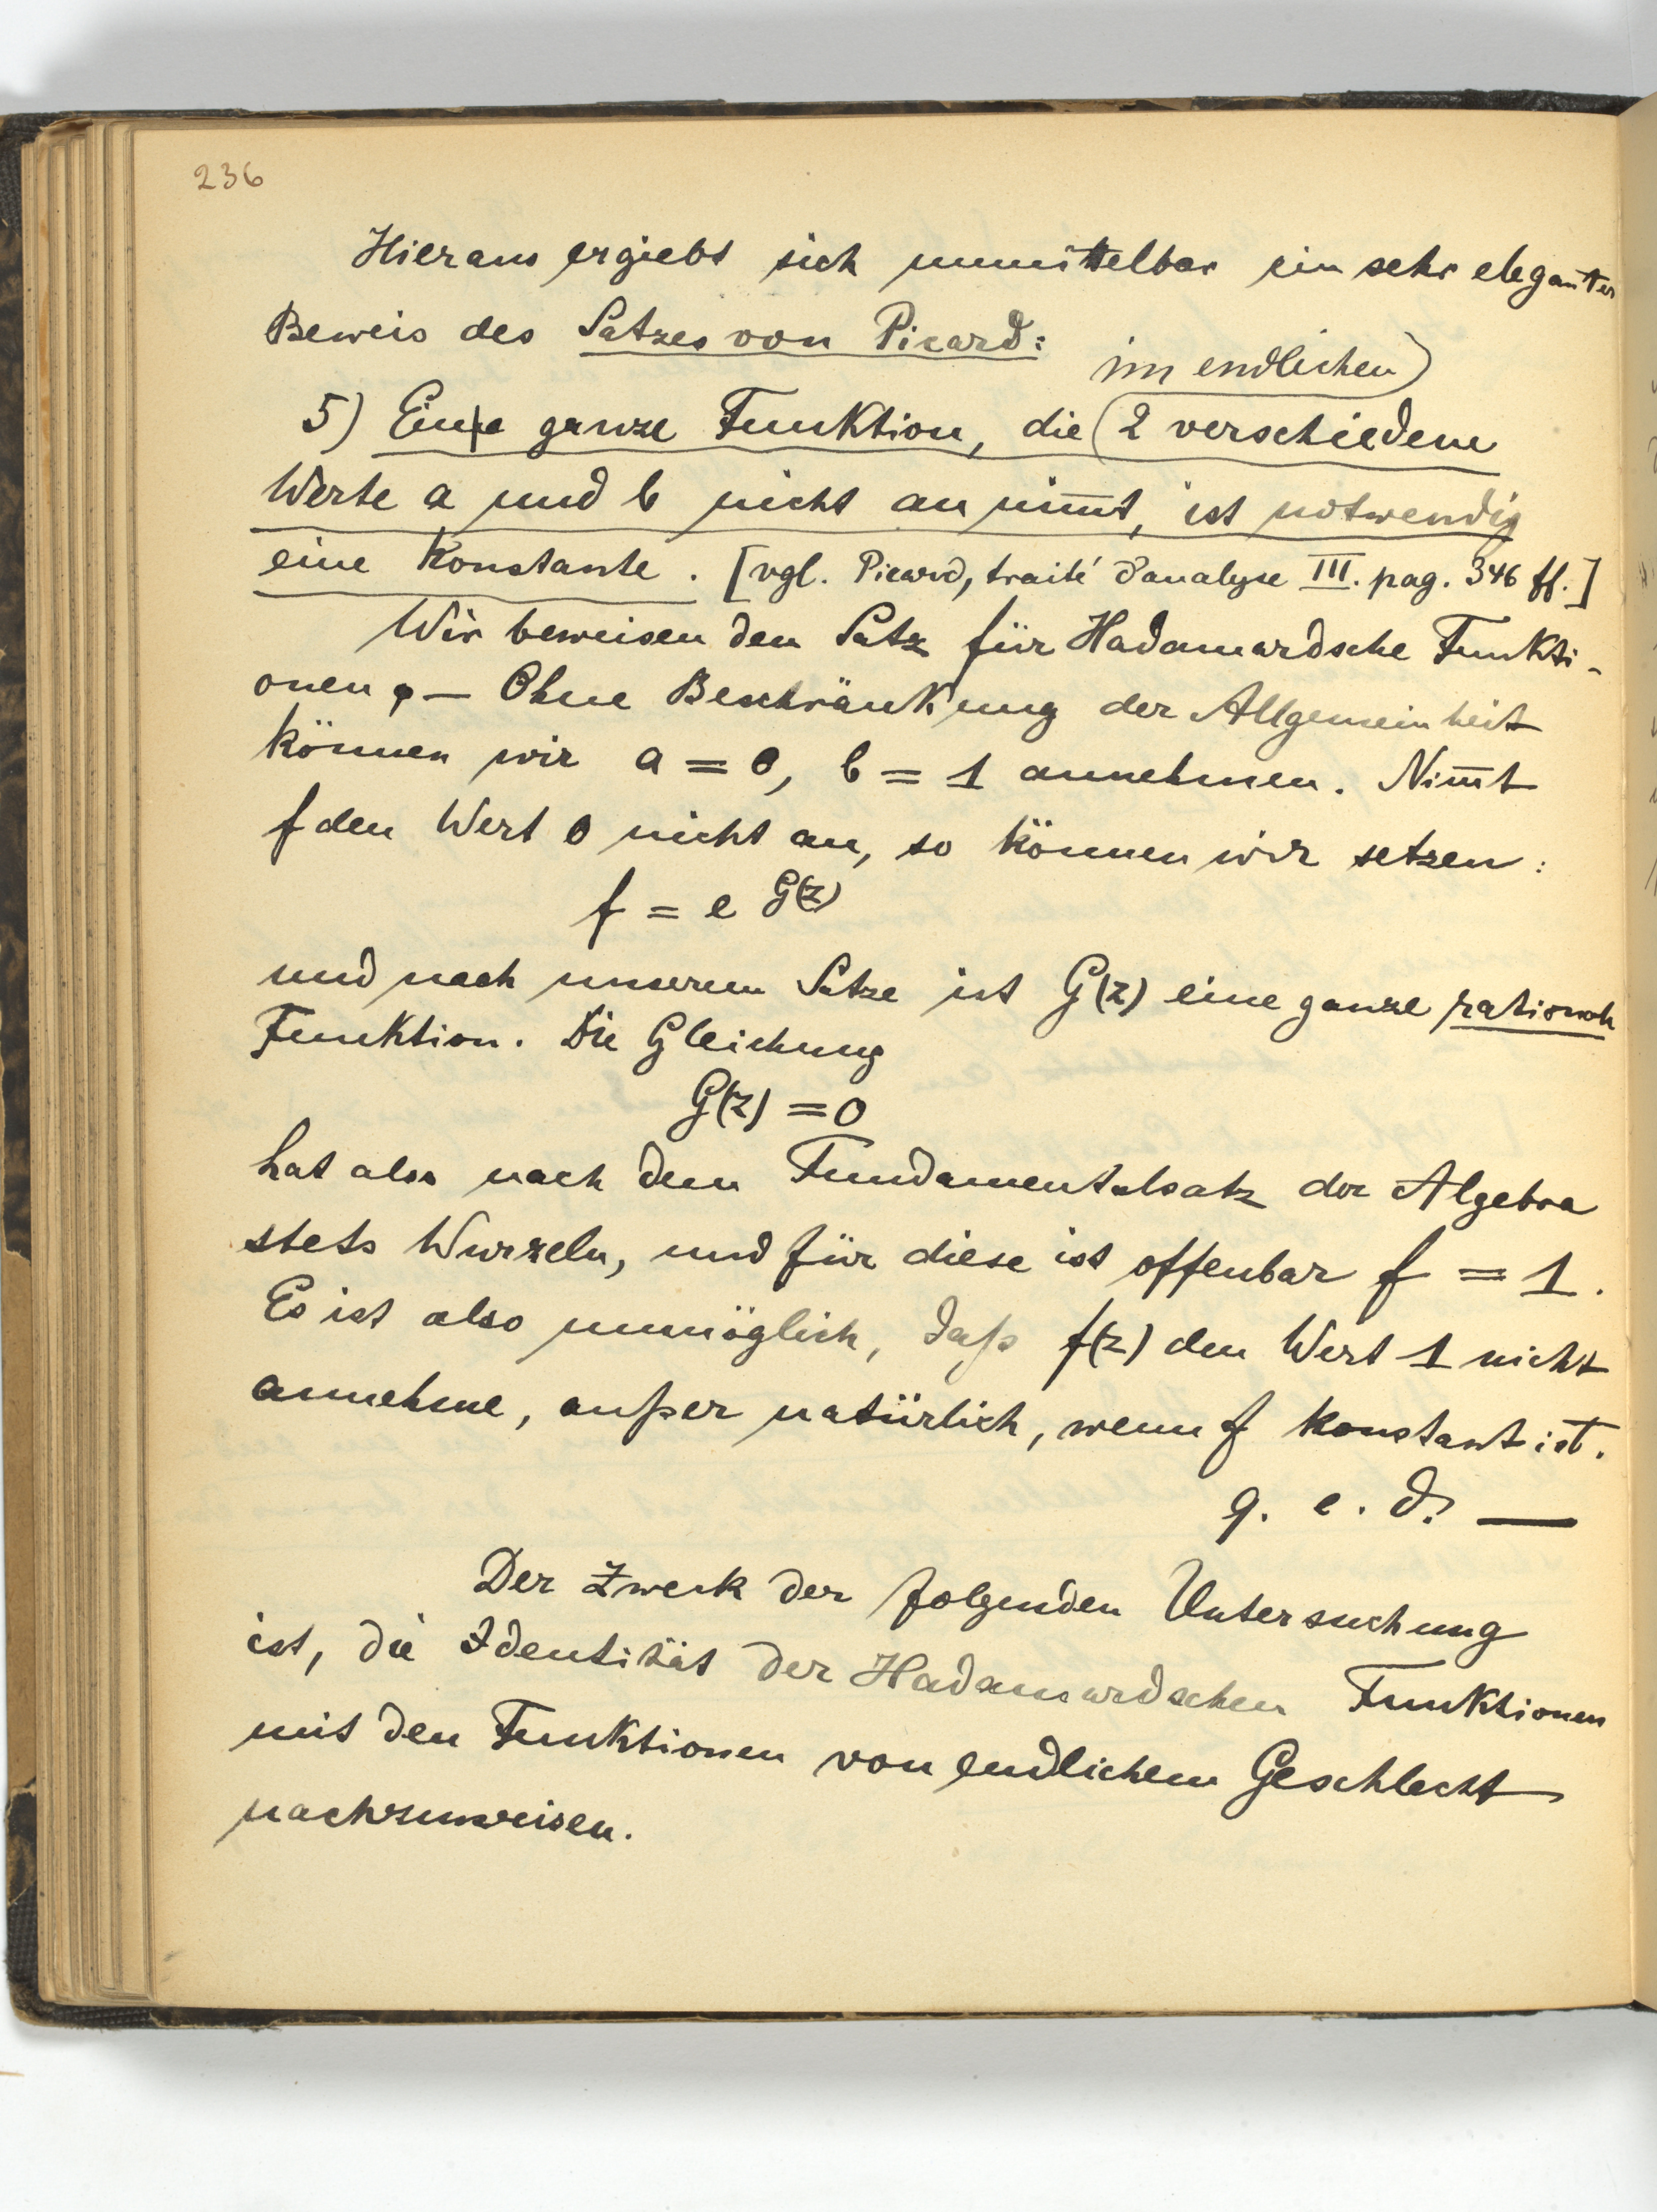 236
Hieraus ergiebt sich unmittelbar ein sehr eleganter
Beweis des Satzes von Picard:
im endlichen
5) Eine ganze Funktion, die 2 verschiedene
Werte a und b nicht annim̅t, ist notwendig
eine Konstante. [vgl. Picard, traité d'analyse III. pag. 346 ff.]
Wir beweisen den Satz für Hadamardsche Funkti-
onen. — Ohne Beschränkung der Allgemeinheit
können wir a = 0, b = 1 annehmen. Nim̅t
f den Wert 0 nicht an, so können wir setzen:
f = e^{G(z)}
und nach unserem Satze ist G(z) eine ganze rationale
Funktion. Die Gleichung
G(z) = 0
hat also nach dem Fundamentalsatz der Algebra
stets Wurzeln, und für diese ist offenbar f = 1.
Es ist also unmöglich, daß f(z) den Wert 1 nicht
annehme, außer natürlich, wenn f konstant ist.
q. e. d. —
Der Zweck der folgenden Untersuchung
ist, die Identität der Hadamardschen Funktionen
mit den Funktionen von endlichem Geschlecht
nachzuweisen.